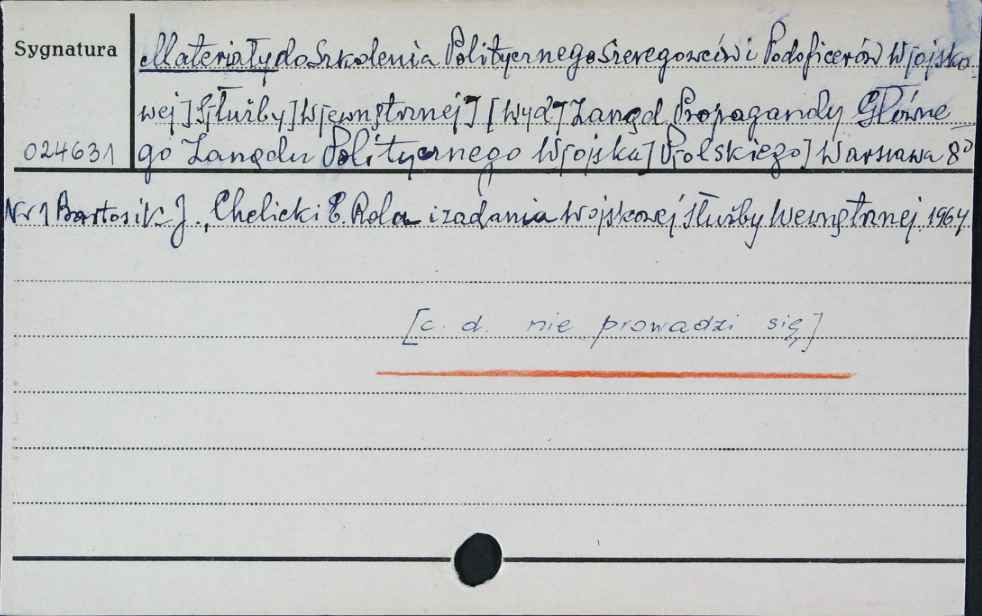 Sygnatura
Materiały do Szkolenia Politycznego Szeregowców i Podoficerów W[ojsko
wej] S[łużby] W[ewnętrznej] [Wyd] Zarząd Propagandy Główne
024631 go Zarządu Politycznego W[ojska] P[olskiego] Warszawa 8°
Nr 1 Bartosik J., Chelicki E. Rola i zadania Wojskowej Służby Wewnętrznej. 1964
[c. d. nie prowadzi się]